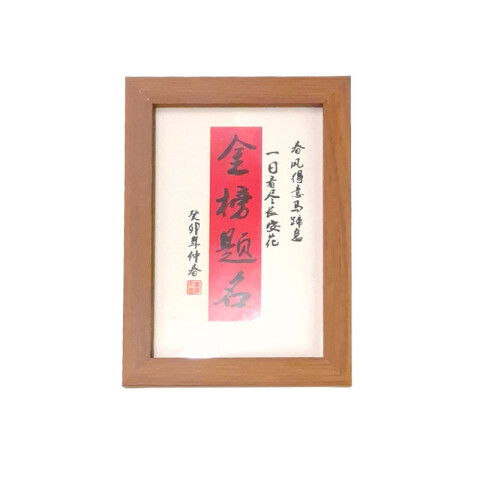 春风得意马蹄急
一日看尽长安花
金榜题名
癸卯年仲春